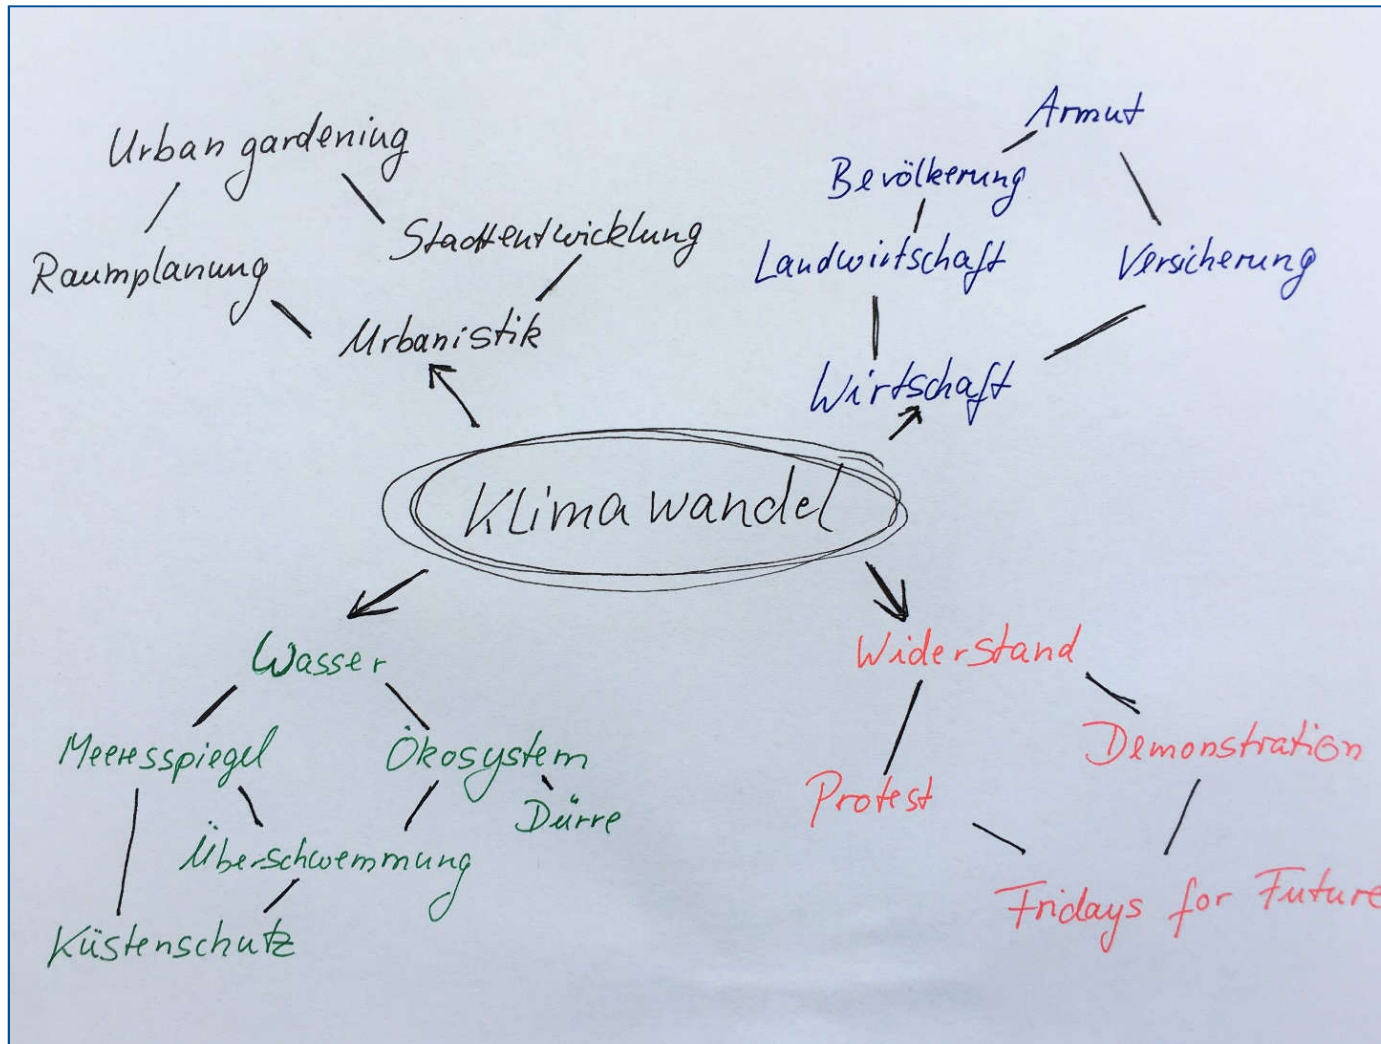 Urban gardening
Raumplanung
Stadtentwicklung
Urbanistik
Armut
Bevölkerung
Landwirtschaft
Versicherung
Wirtschaft
Klimawandel
Wasser
Meeresspiegel
Ökosystem
Dürre
Überschwemmung
Küstenschutz
Widerstand
Demonstration
Protest
Fridays for Future